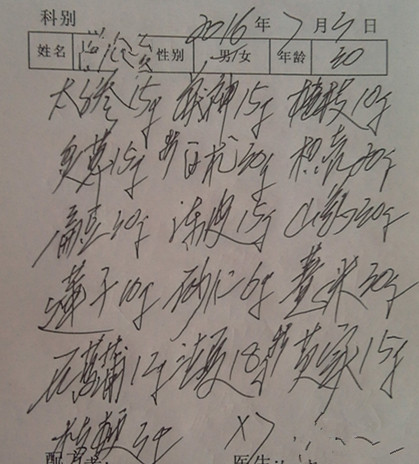 科别 2016年7月3日
姓名 性别 男/女 年龄 30
太子参15g 茯神15g 桂枝10g
炙草15g 白术30g 枳壳30g
扁豆30g 陈皮15g 山药30g
莲子10g 砂仁6g 薏米30g
石菖蒲12g 法夏18g 黄家15g
桔梗 g
X7
配 医生: